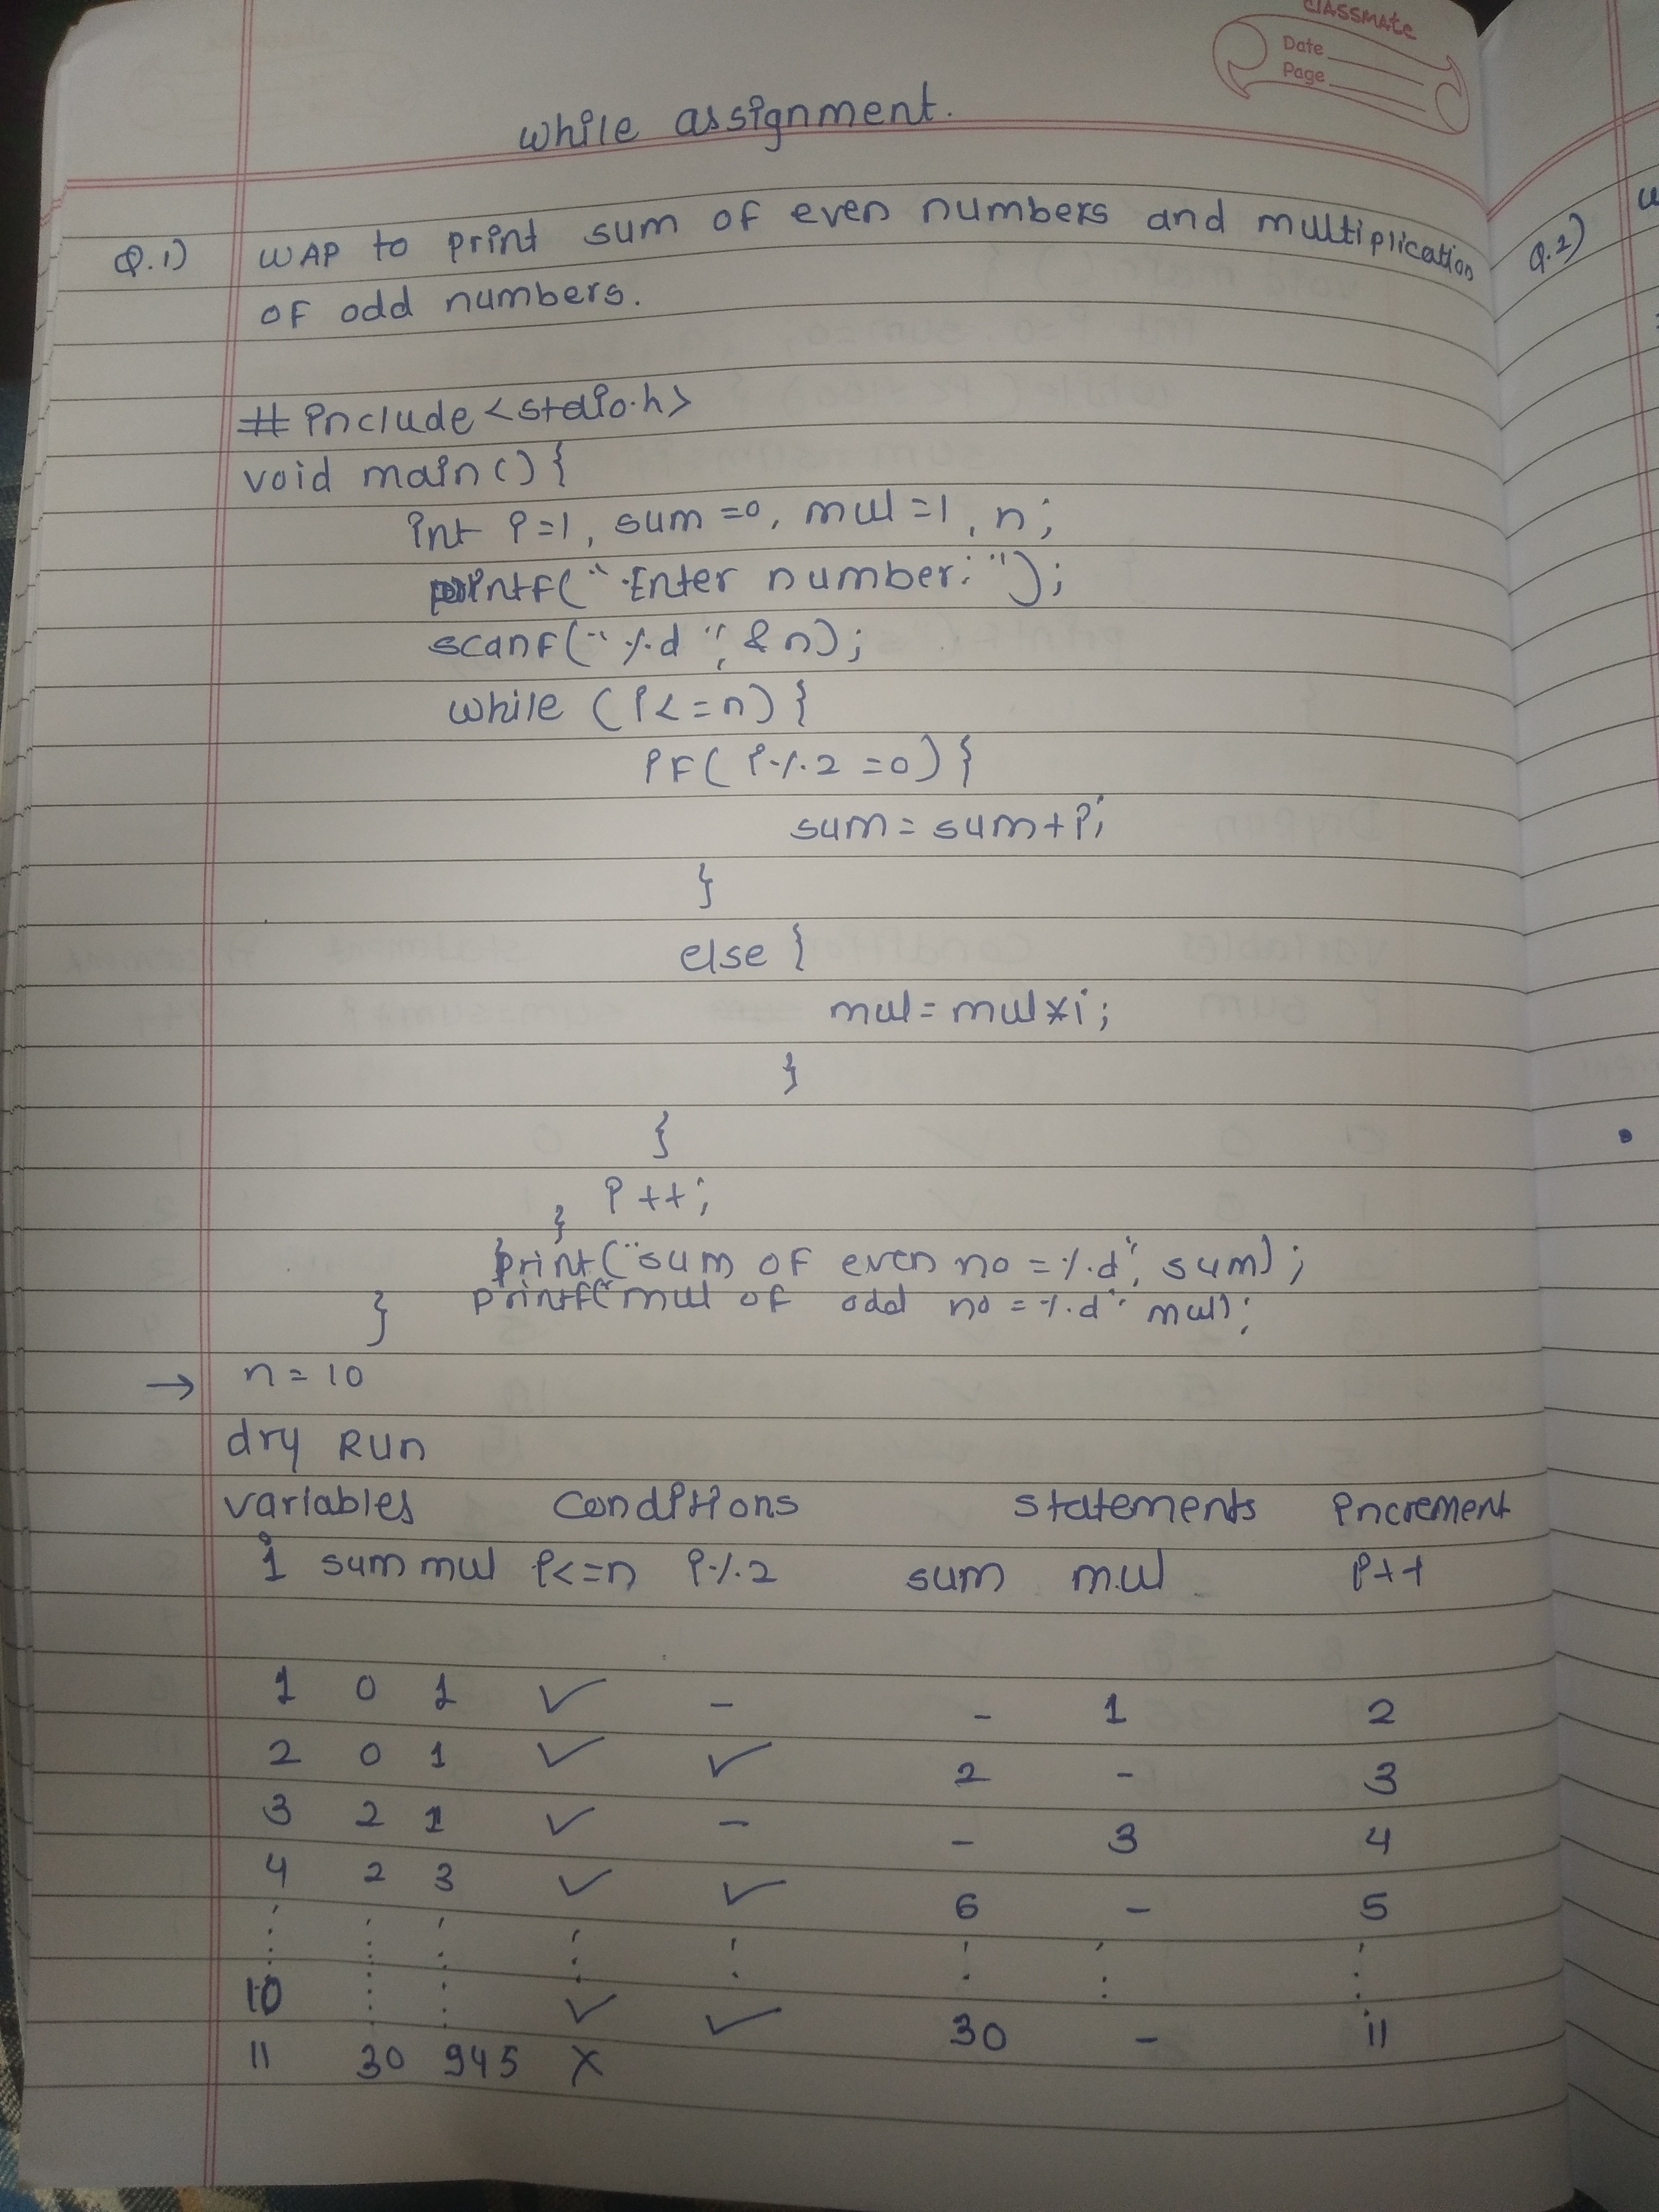 classmate
Date
Page
while assignment.
Q.1) WAP to print sum of even numbers and multiplication
of odd numbers.
Q.2)
#include<stdio.h>
void main(){
int i=1, sum=0, mul=1, n;
printf("Enter number:");
scanf("%d", &n);
while (i<=n){
if(i%2=0){
sum=sum+i;
}
else{
mul=mul*i;
}
}
i++;
}
print("sum of even no =%d", sum);
printf("mul of odd no =%d" mul);
}
→ n=10
dry Run
variables conditions statements increment
i sum mul i<=n i%2 sum mul i++
1 0 1 ✓ - - 1 2
2 0 1 ✓ ✓ 2 - 3
3 2 1 ✓ - - 3 4
4 2 3 ✓ ✓ 6 - 5
10 ✓ ✓ 30 - 11
11 30 945 ×